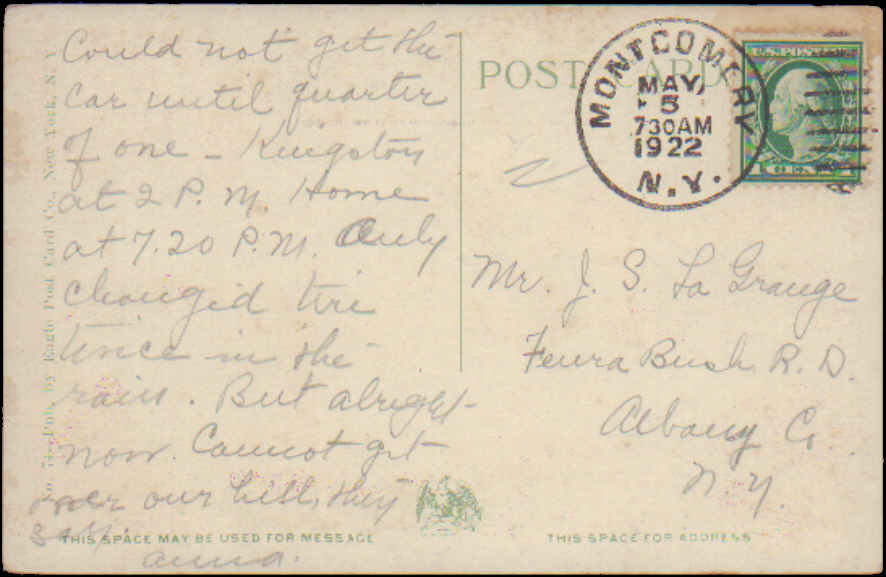 Could not get the
car until quarter
of one – Kingston
at 2 P.M. Home
at 7.20 P.M. Only
changed tire
twice in the
rain. But alright
now. Cannot get
over our hill, they
say.
Anna.
THIS SPACE MAY BE USED FOR MESSAGE
Pub. by Eagle Post Card Co., New York, N. Y.
POST CARD
MONTGOMERY
MAY
5
730AM
1922
N.Y.
U.S. POSTAGE
Mr. J. S. La Grange
Feura Bush R. D.
Albany Co
N. Y.
THIS SPACE FOR ADDRESS